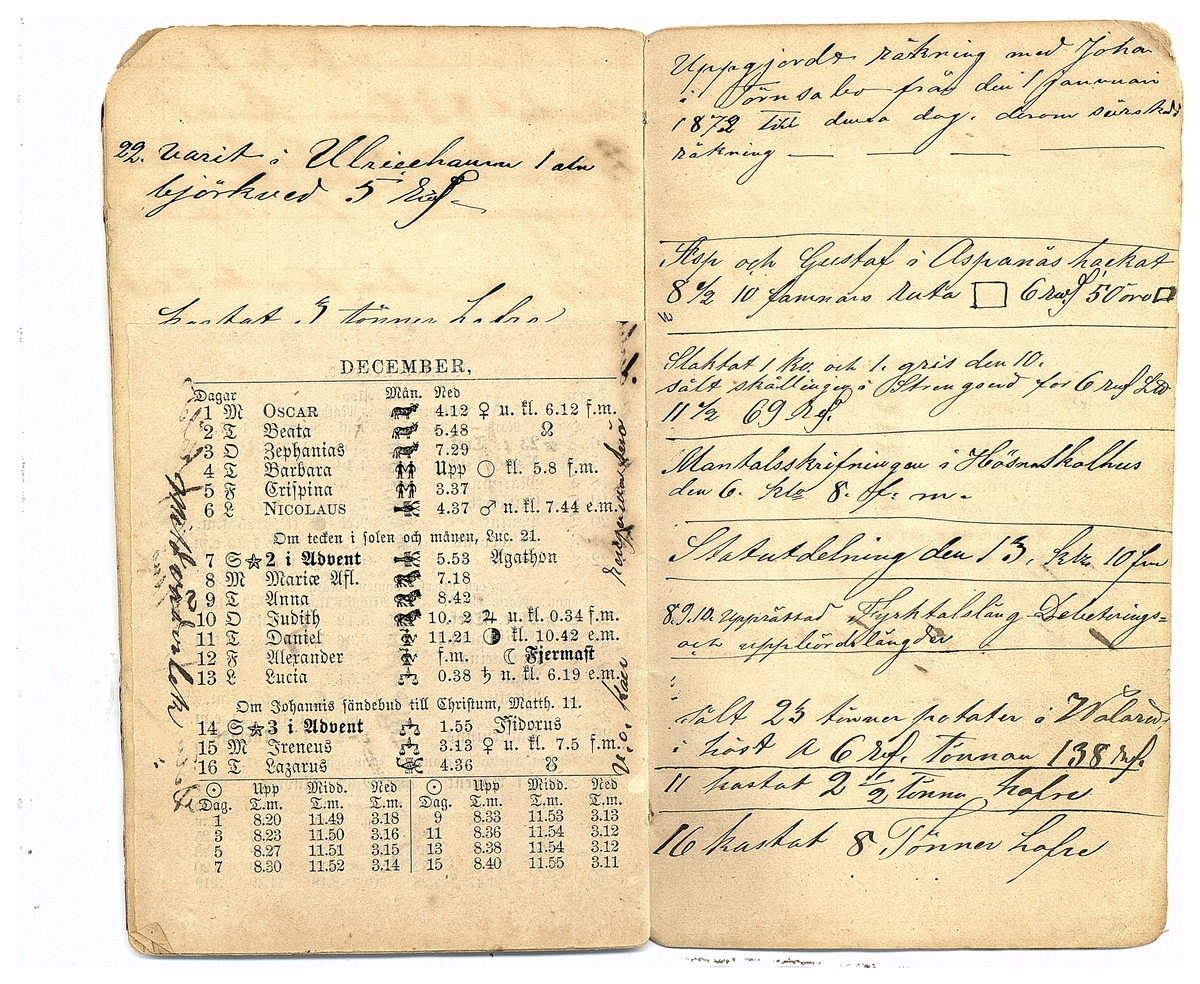 22. varit i Ulricehamn 1 aln
björkved 5 Rdf
kastat 3 tönner hafre
DECEMBER,
Dagar Mån. Ned
1 M OSCAR 4.12 ♀ u. kl. 6.12 f.m.
2 T Beata 5.48 ☊
3 O Zephanias 7.29
4 T Barbara Upp ○ kl. 5.8 f.m.
5 F Crispina 3.37
6 L NICOLAUS 4.37 ♂ u. kl. 7.44 e.m.
Om tecken i solen och månen, Luc. 21.
7 S ☆ 2 i Advent 5.53 Agathon
8 M Mariæ Afl. 7.18
9 T Anna 8.42
10 O Judith 10. 2 ♃ u. kl. 0.34 f.m.
11 T Daniel 11.21 ◑ kl. 10.42 e.m.
12 F Alexander f.m. ☾ Fjermast
13 L Lucia 0.38 ♄ n. kl. 6.19 e.m.
Om Johannis sändebud till Christum, Matth. 11.
14 S ☆ 3 i Advent 1.55 Isidorus
15 M Ireneus 3.13 ♀ u. kl. 7.5 f.m.
16 T Lazarus 4.36 ☋
☉ Upp Midd. Ned ☉ Upp Midd. Ned
Dag. T.m. T.m. T.m. Dag. T.m. T.m. T.m.
1 8.20 11.49 3.18 9 8.33 11.53 3.13
3 8.23 11.50 3.16 11 8.36 11.54 3.12
5 8.27 11.51 3.15 13 8.38 11.54 3.12
7 8.30 11.52 3.14 15 8.40 11.55 3.11
Uppgjordt räkning med Joha
i Törnsabo från den 1 januari
1872 till denna dag. derom särskild
räkning
Asp och Gustaf i Aspanäs hackat
8 1/2 10 famnars ruta 6 Rdf 50 öro
Slaktat 1 ko. och 1. gris den 10.
sålt skällingen i Strengsered for 6 Rdf L℔
11 1/2 69 Rdf.
Mantalsskrifningen i Hössna Skolhus
den 6. klo 8. f: m.
Statutdelning den 13, klo. 10 fm
8.9.10. upprättad Fyrktalsläng Debeterings=
och uppbördslängder
sålt 23 tönner potater i
i höst A 6 Rdf. tönnan 138 Rdf.
11 kastat 2 1/2 Tönna hafre
16 kastat 8 Tönner hafre